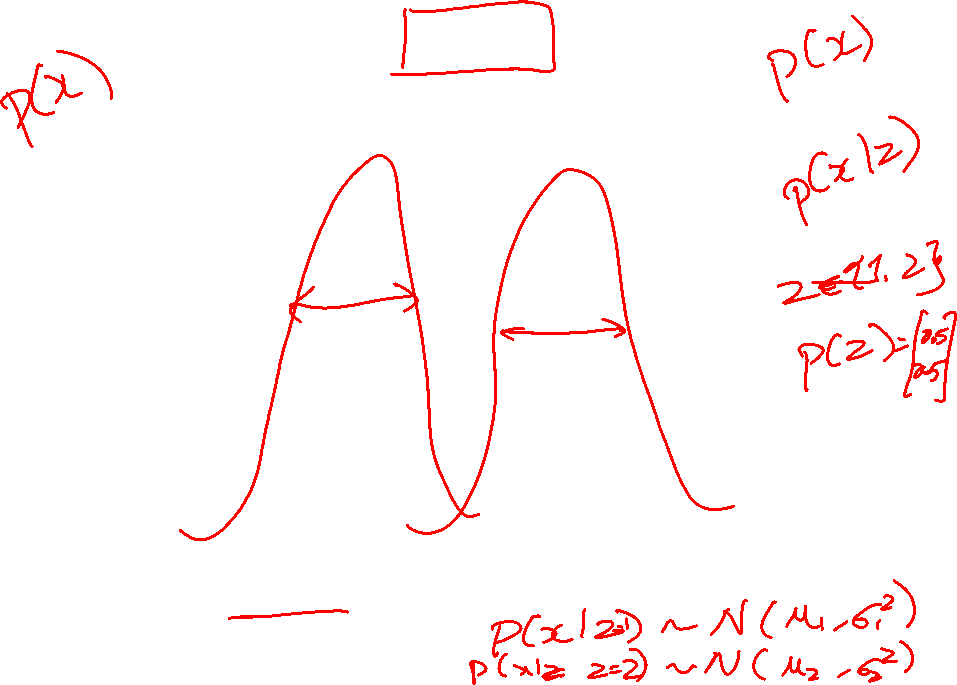 p(x)
p(x)
p(x|z)
z ∈ {1, 2}
p(z) = [0.5 0.5]
p(x|z=1) ~ N(μ₁, σ₁²)
p(x|z z=2) ~ N(μ₂, σ₂²)